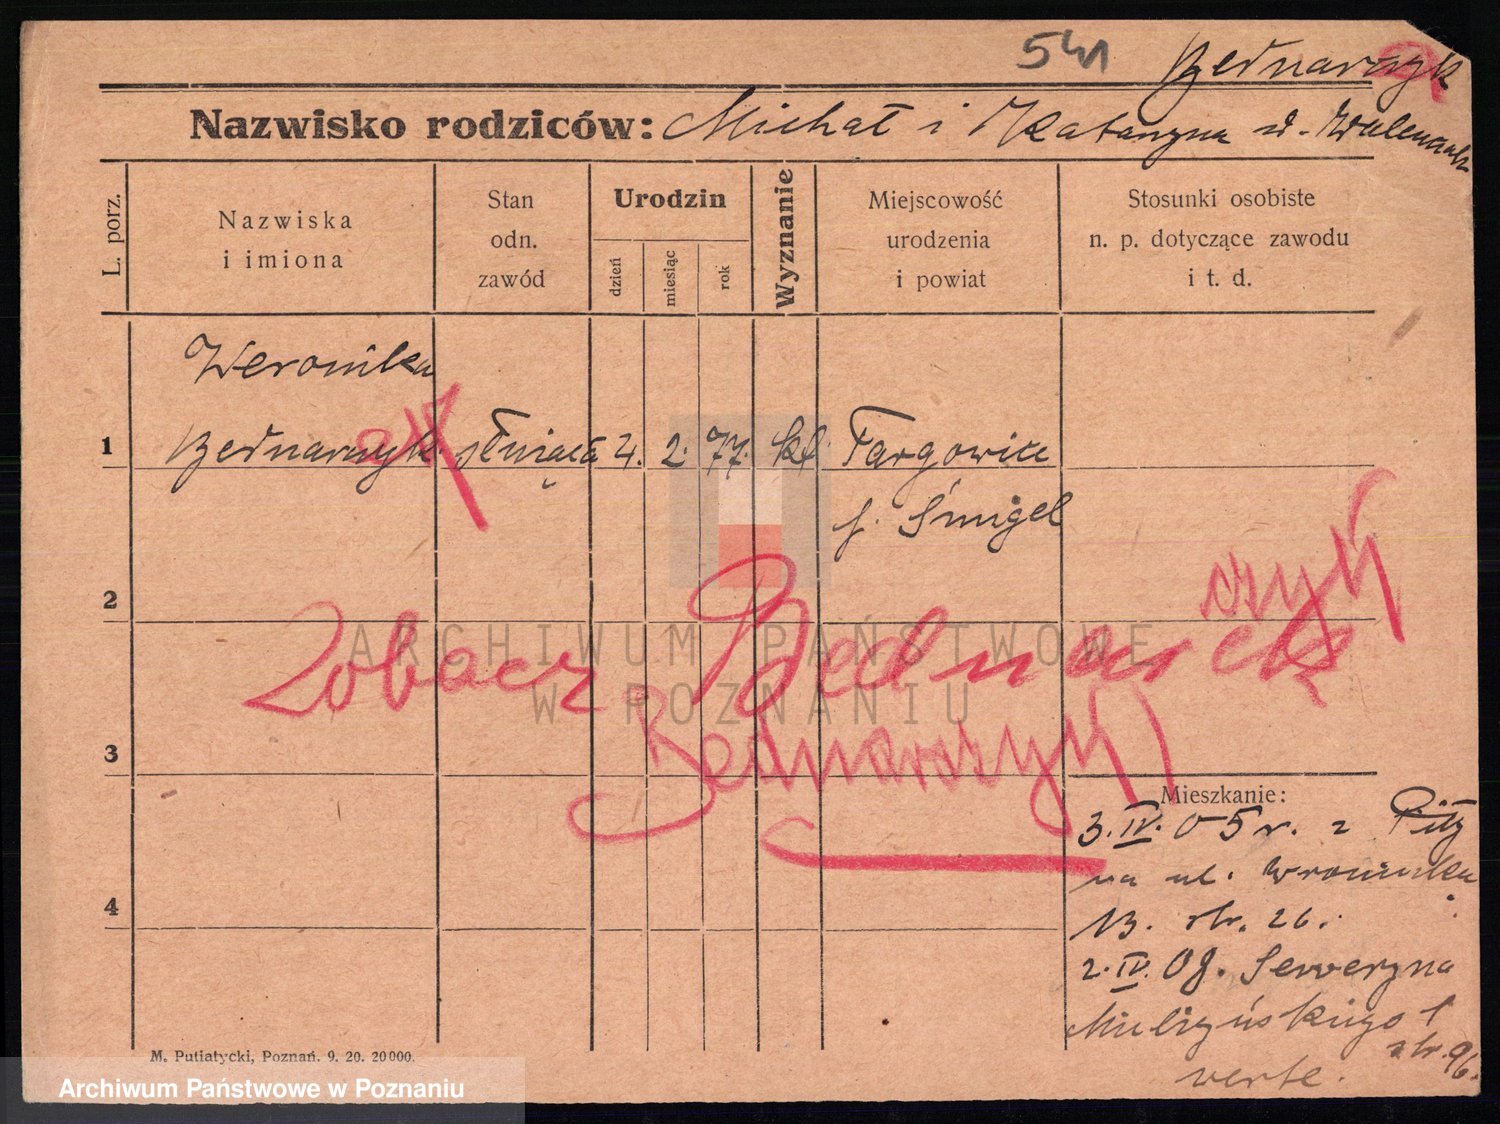 541 Bednarczyk
Nazwisko rodziców: Michał i Katarzyna
L. porz.
Nazwiska
i imiona
Stan
odn.
zawód
Urodzin
dzień
miesiąc
rok
Wyznanie
Miejscowość
urodzenia
i powiat
Stosunki osobiste
n. p. dotyczące zawodu
i t. d.
Weronika
1 Bednarczyk służąca 4. 2. 77. kł. Targowice
Śmigel
2
czyk
Zobacz Bednarek
3
Bednarczyk
Mieszkanie:
3. IV. 05 r. z
na ul. Wroniecka
4
13. str. 26.
2. IV. 08. Seweryna
Mielżyńskiego 1
str. 96.
verte.
M. Putiatycki, Poznań. 9. 20. 20000.
ARCHIWUM PAŃSTWOWE
W POZNANIU
Archiwum Państwowe w Poznaniu